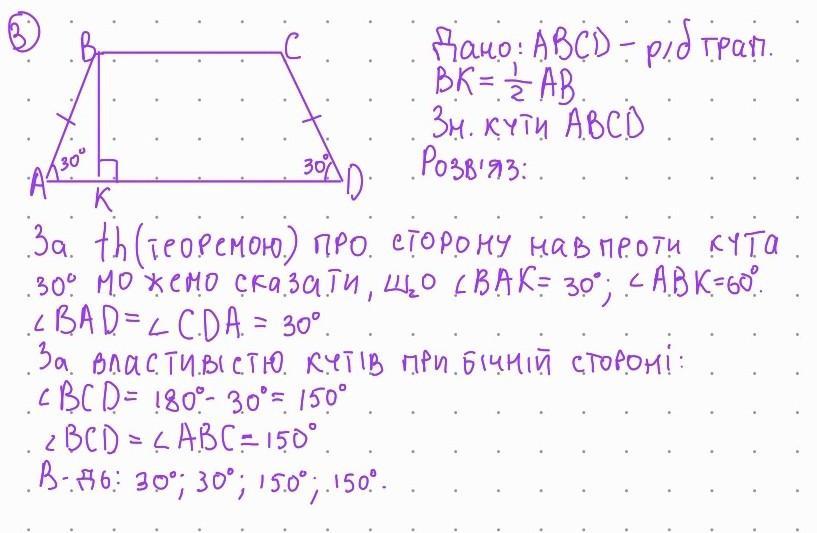 3
B C
A 30° 30° D
K
Дано: ABCD - р/б трап.
BK = 1/2 AB
Зн. кути ABCD
Розв'яз:
За th (теоремою) про сторону навпроти кута
30° можемо сказати, що ∠BAK = 30°; ∠ABK=60°.
∠BAD = ∠CDA = 30°
За властивістю кутів при бічній стороні:
∠BCD = 180° - 30° = 150°
∠BCD = ∠ABC = 150°
В-дь: 30°; 30°; 150°; 150°.